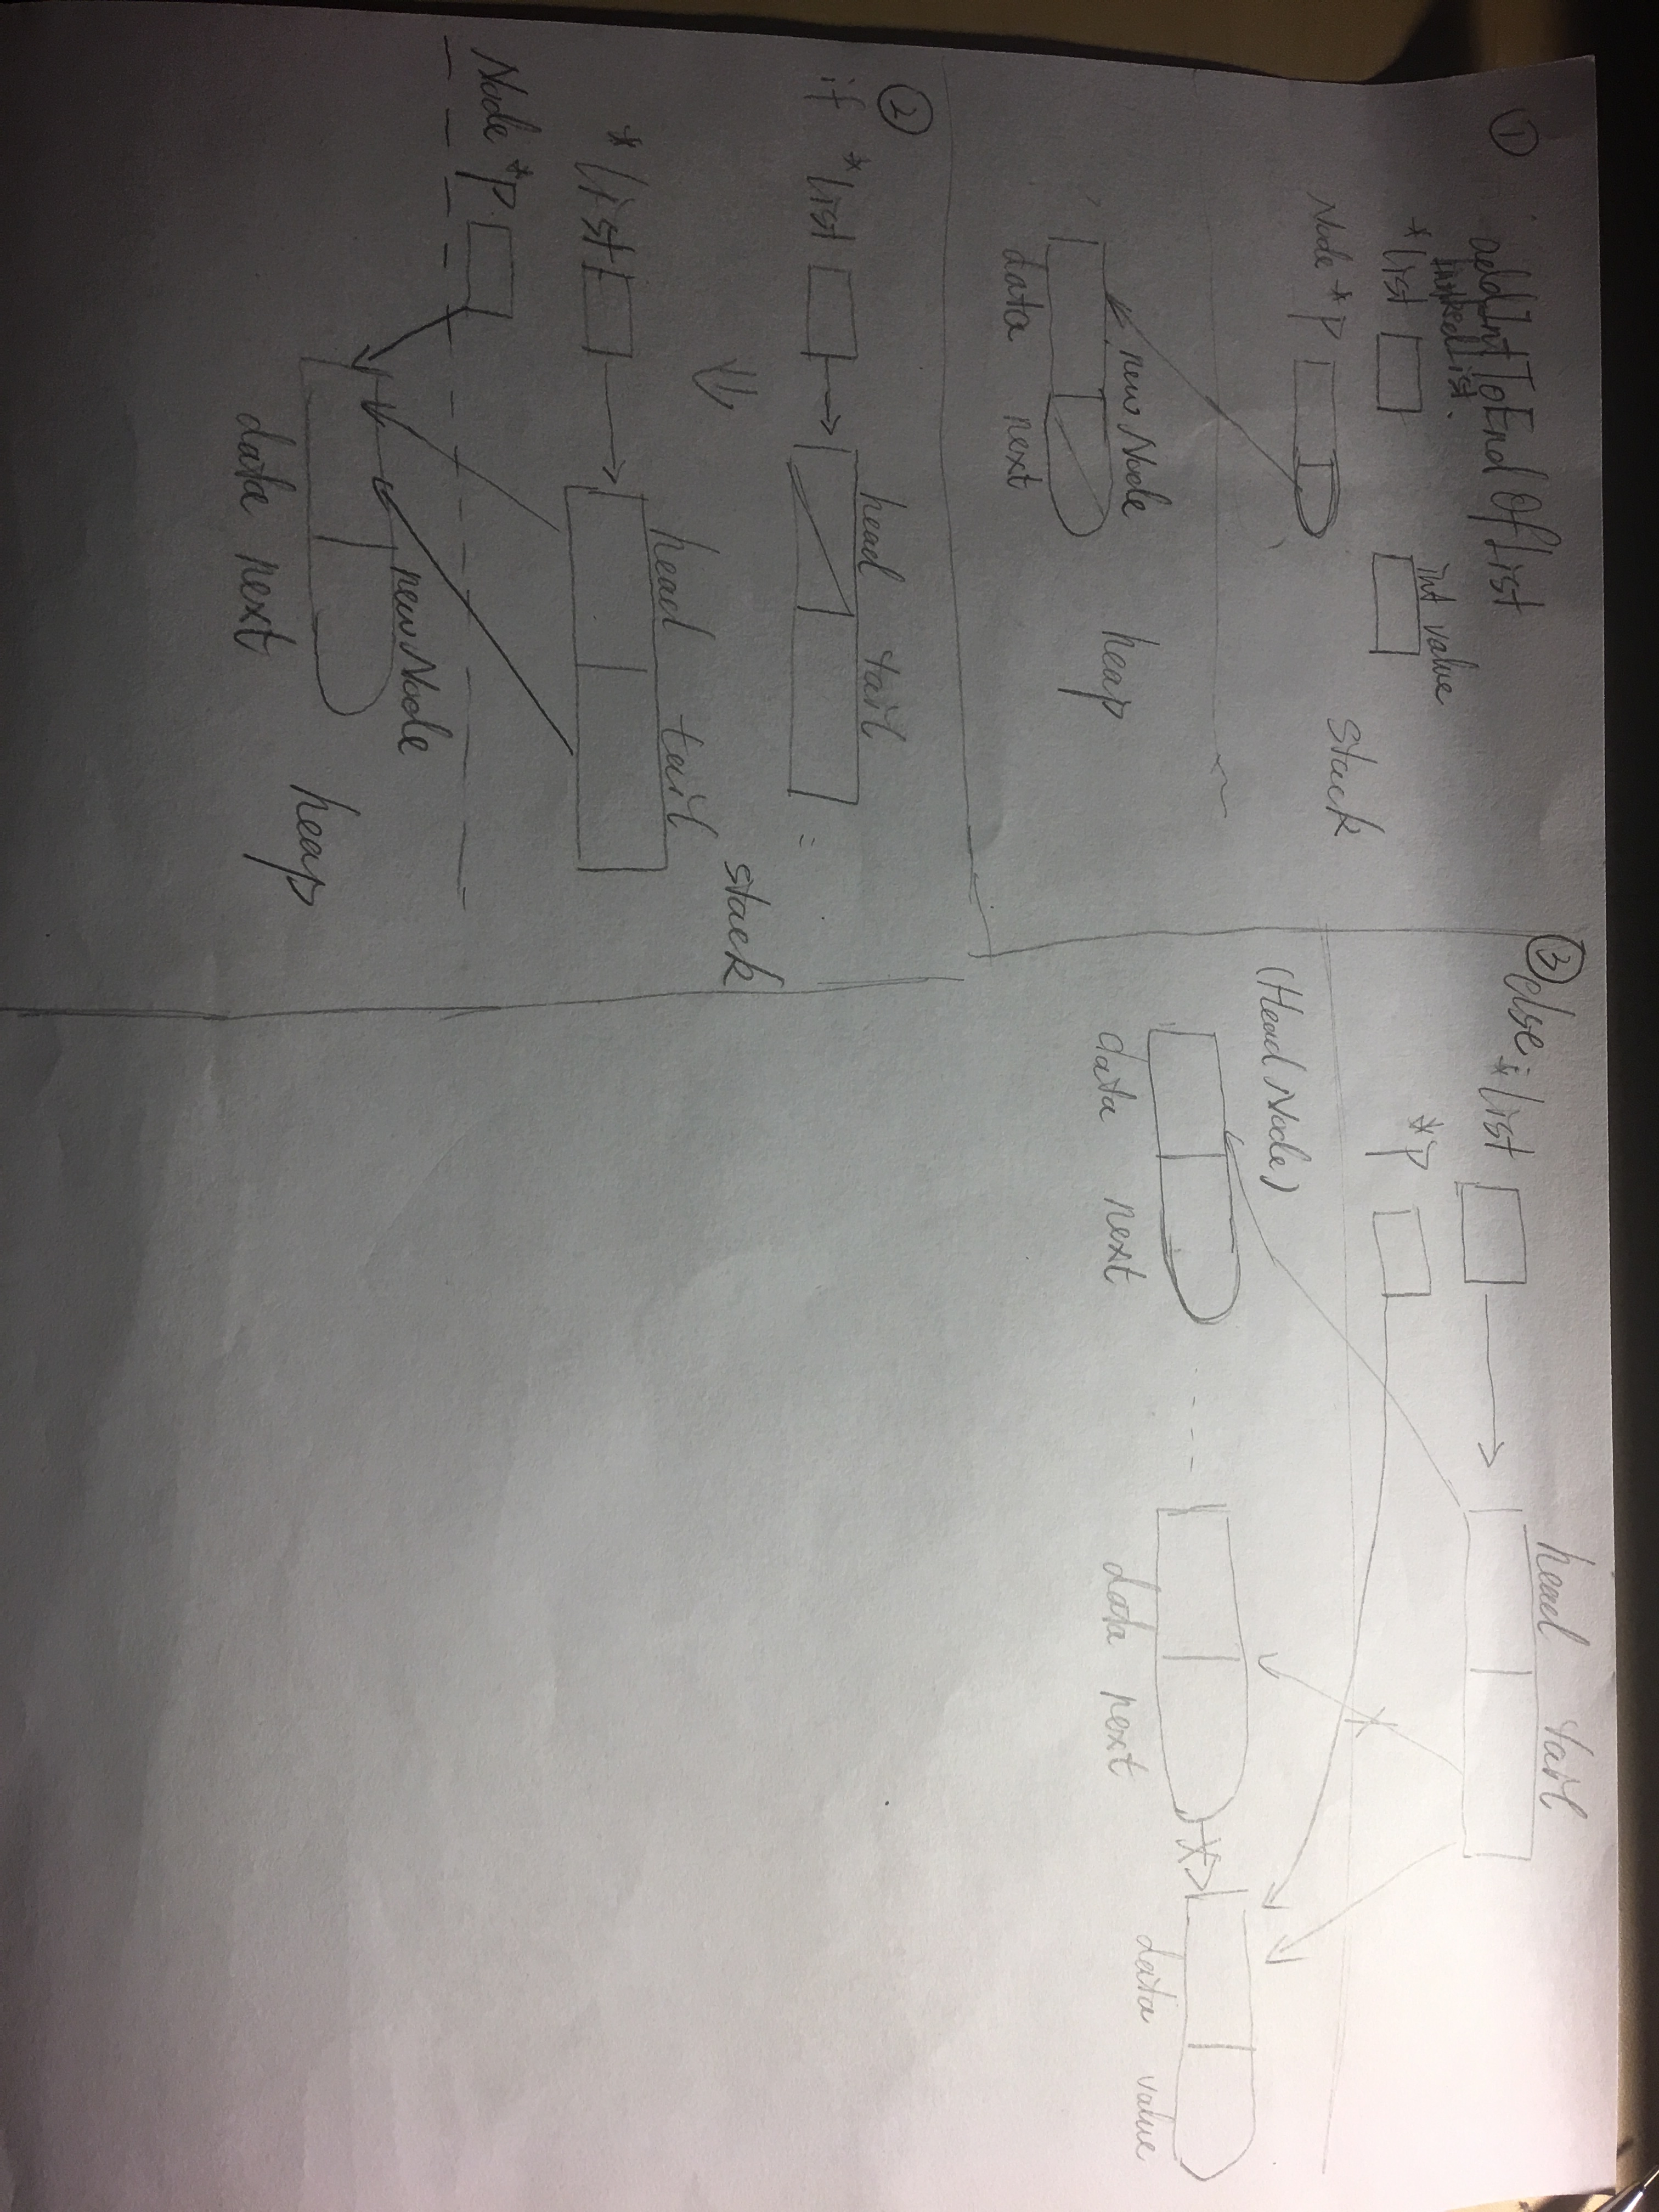 ①
addIntToEndOfList
linkedList
*list
int value
Node *p
stack
newNode
heap
data next
②
if *list
head tail
⇓
stack
*list
head tail
Node *p
newNode
data next
heap
③ else:
*list
head tail
*p
(Head Node)
data next
data next
data value